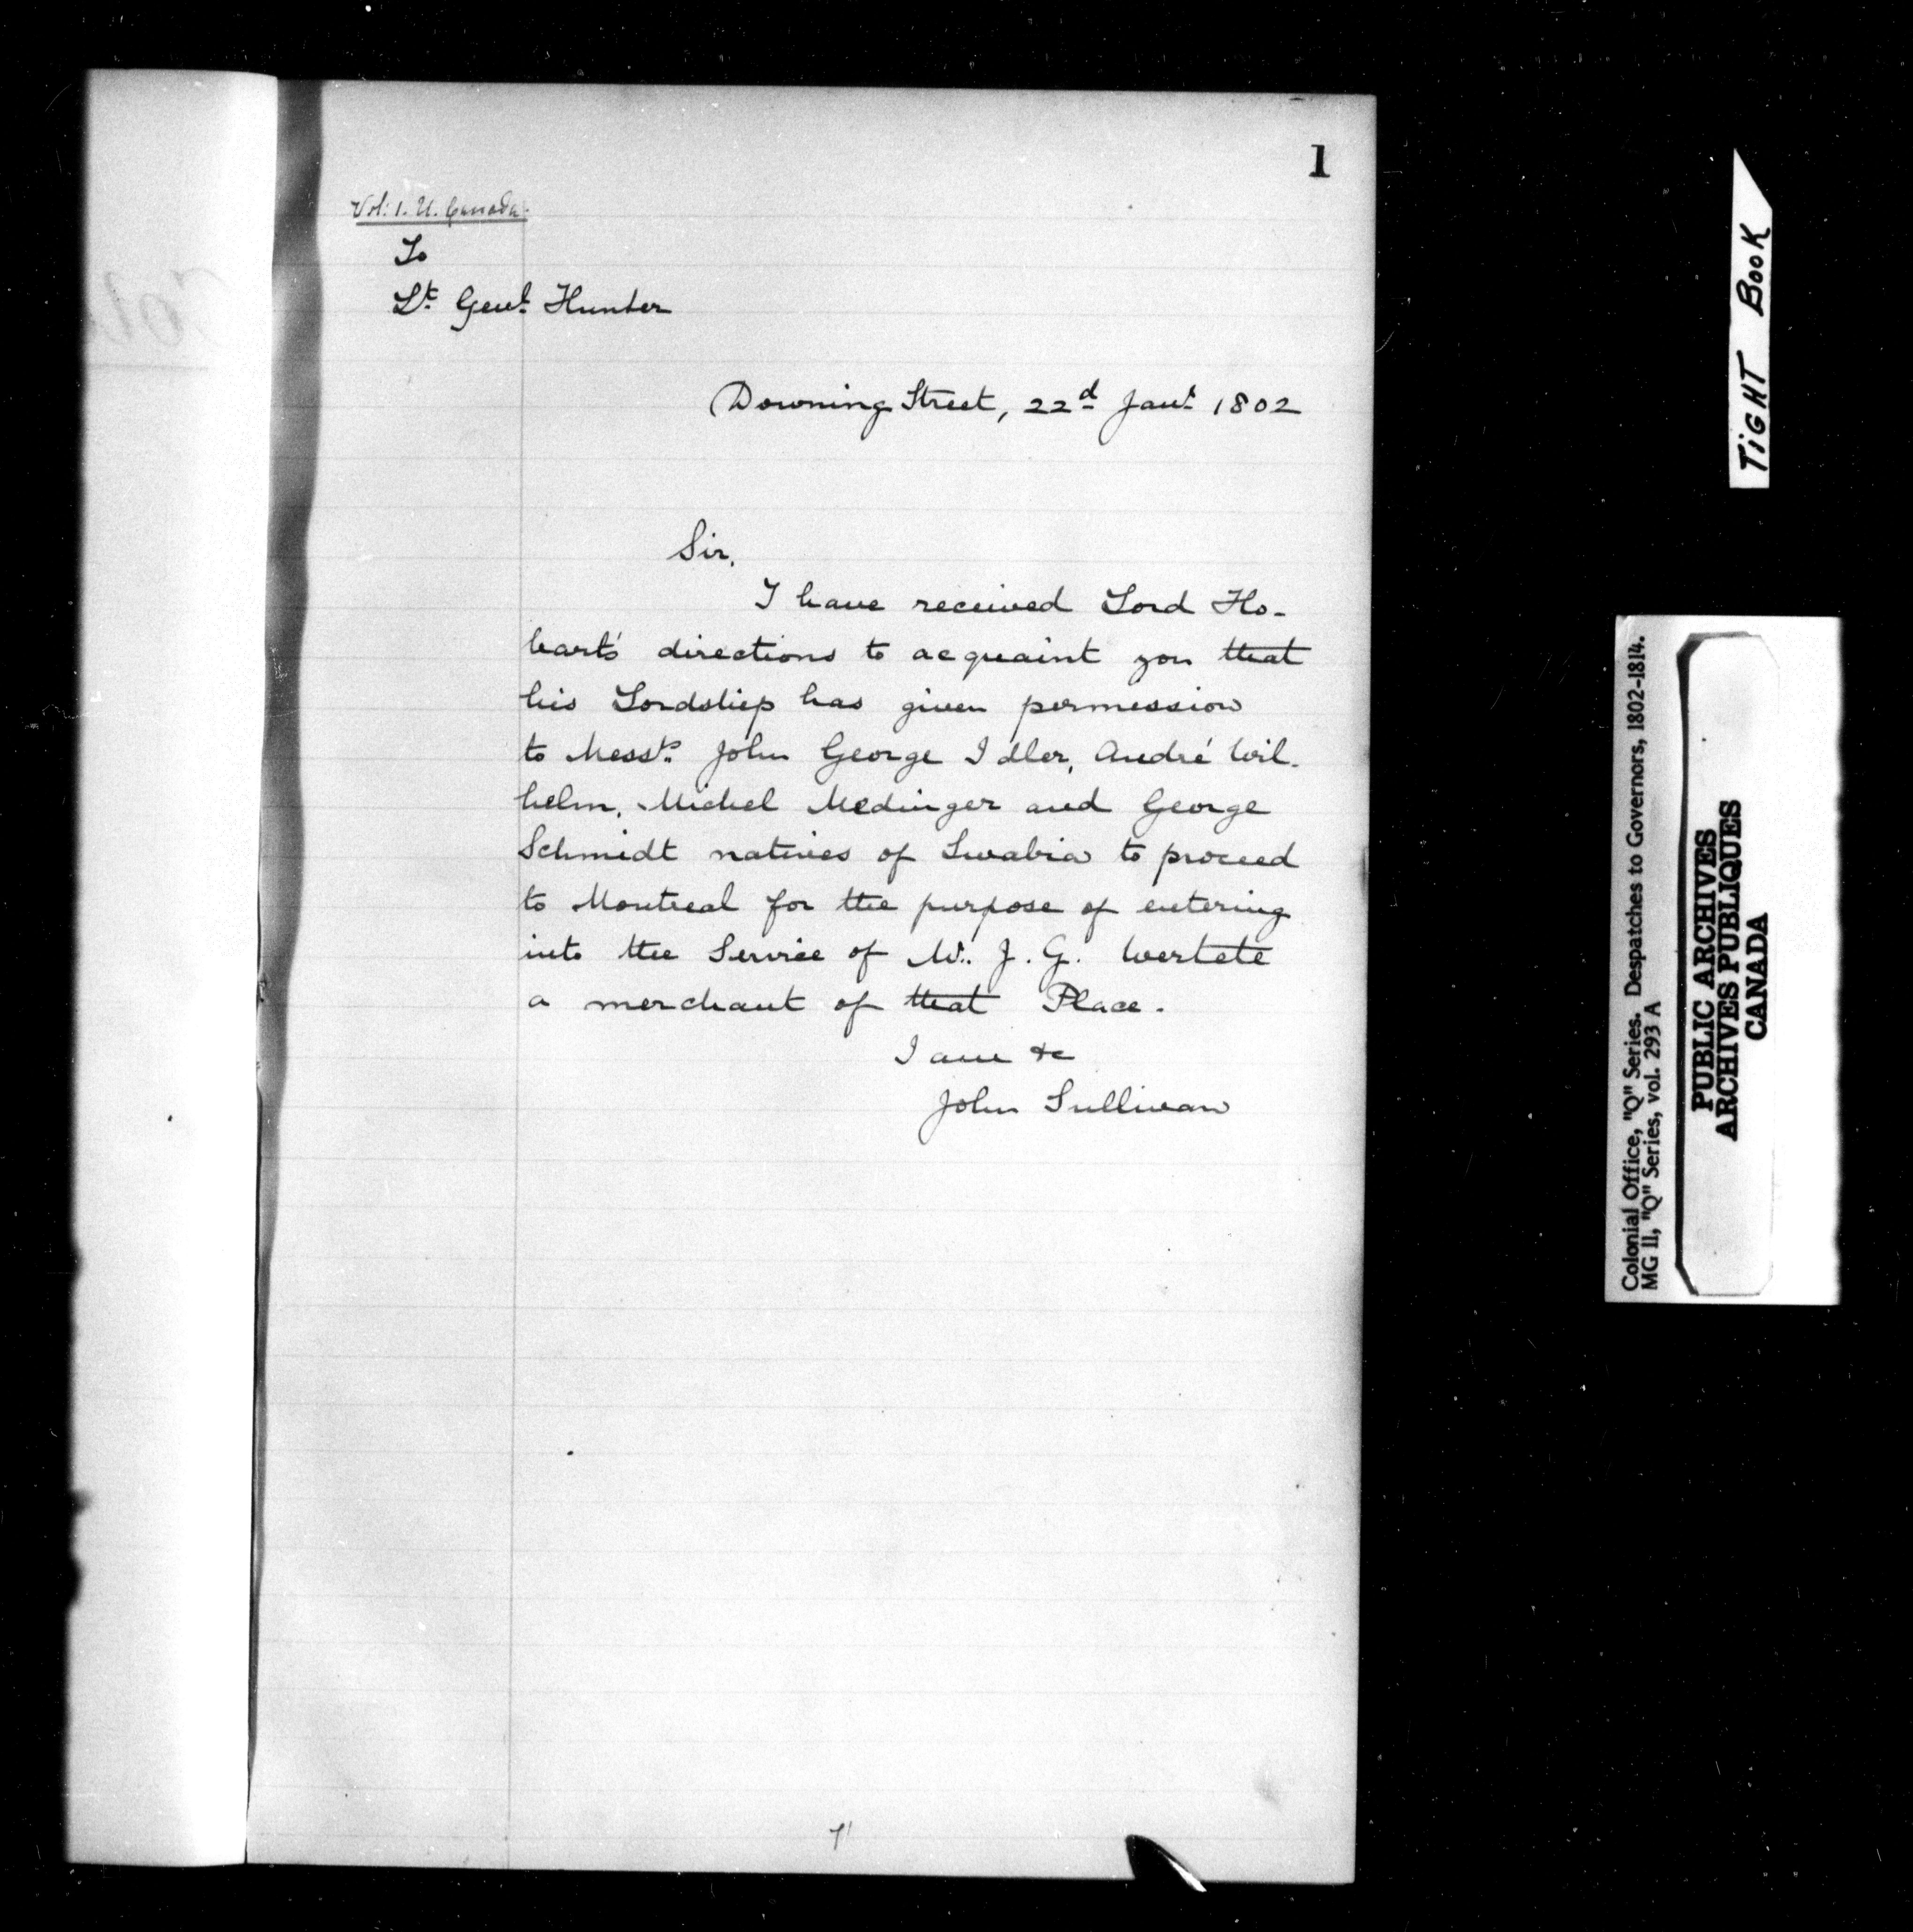 1
Vol: 1. U. Canada.
To
Lt. Genl. Hunter
Downing Street, 22d Jany. 1802
Sir,
I have received Lord Ho-
bart's directions to acquaint you that
his Lordship has given permission
to Messrs. John George Idler, André Wil-
helm, Michel Medinger and George
Schmidt natives of Swabia to proceed
to Montreal for the purpose of entering
into the Service of Mr. J. G. Wertete
a merchant of that Place.
I am &c
John Sullivan
TIGHT BOOK
Colonial Office, "Q" Series. Despatches to Governors, 1802-1814.
MG 11, "Q" Series, vol. 293 A
PUBLIC ARCHIVES
ARCHIVES PUBLIQUES
CANADA